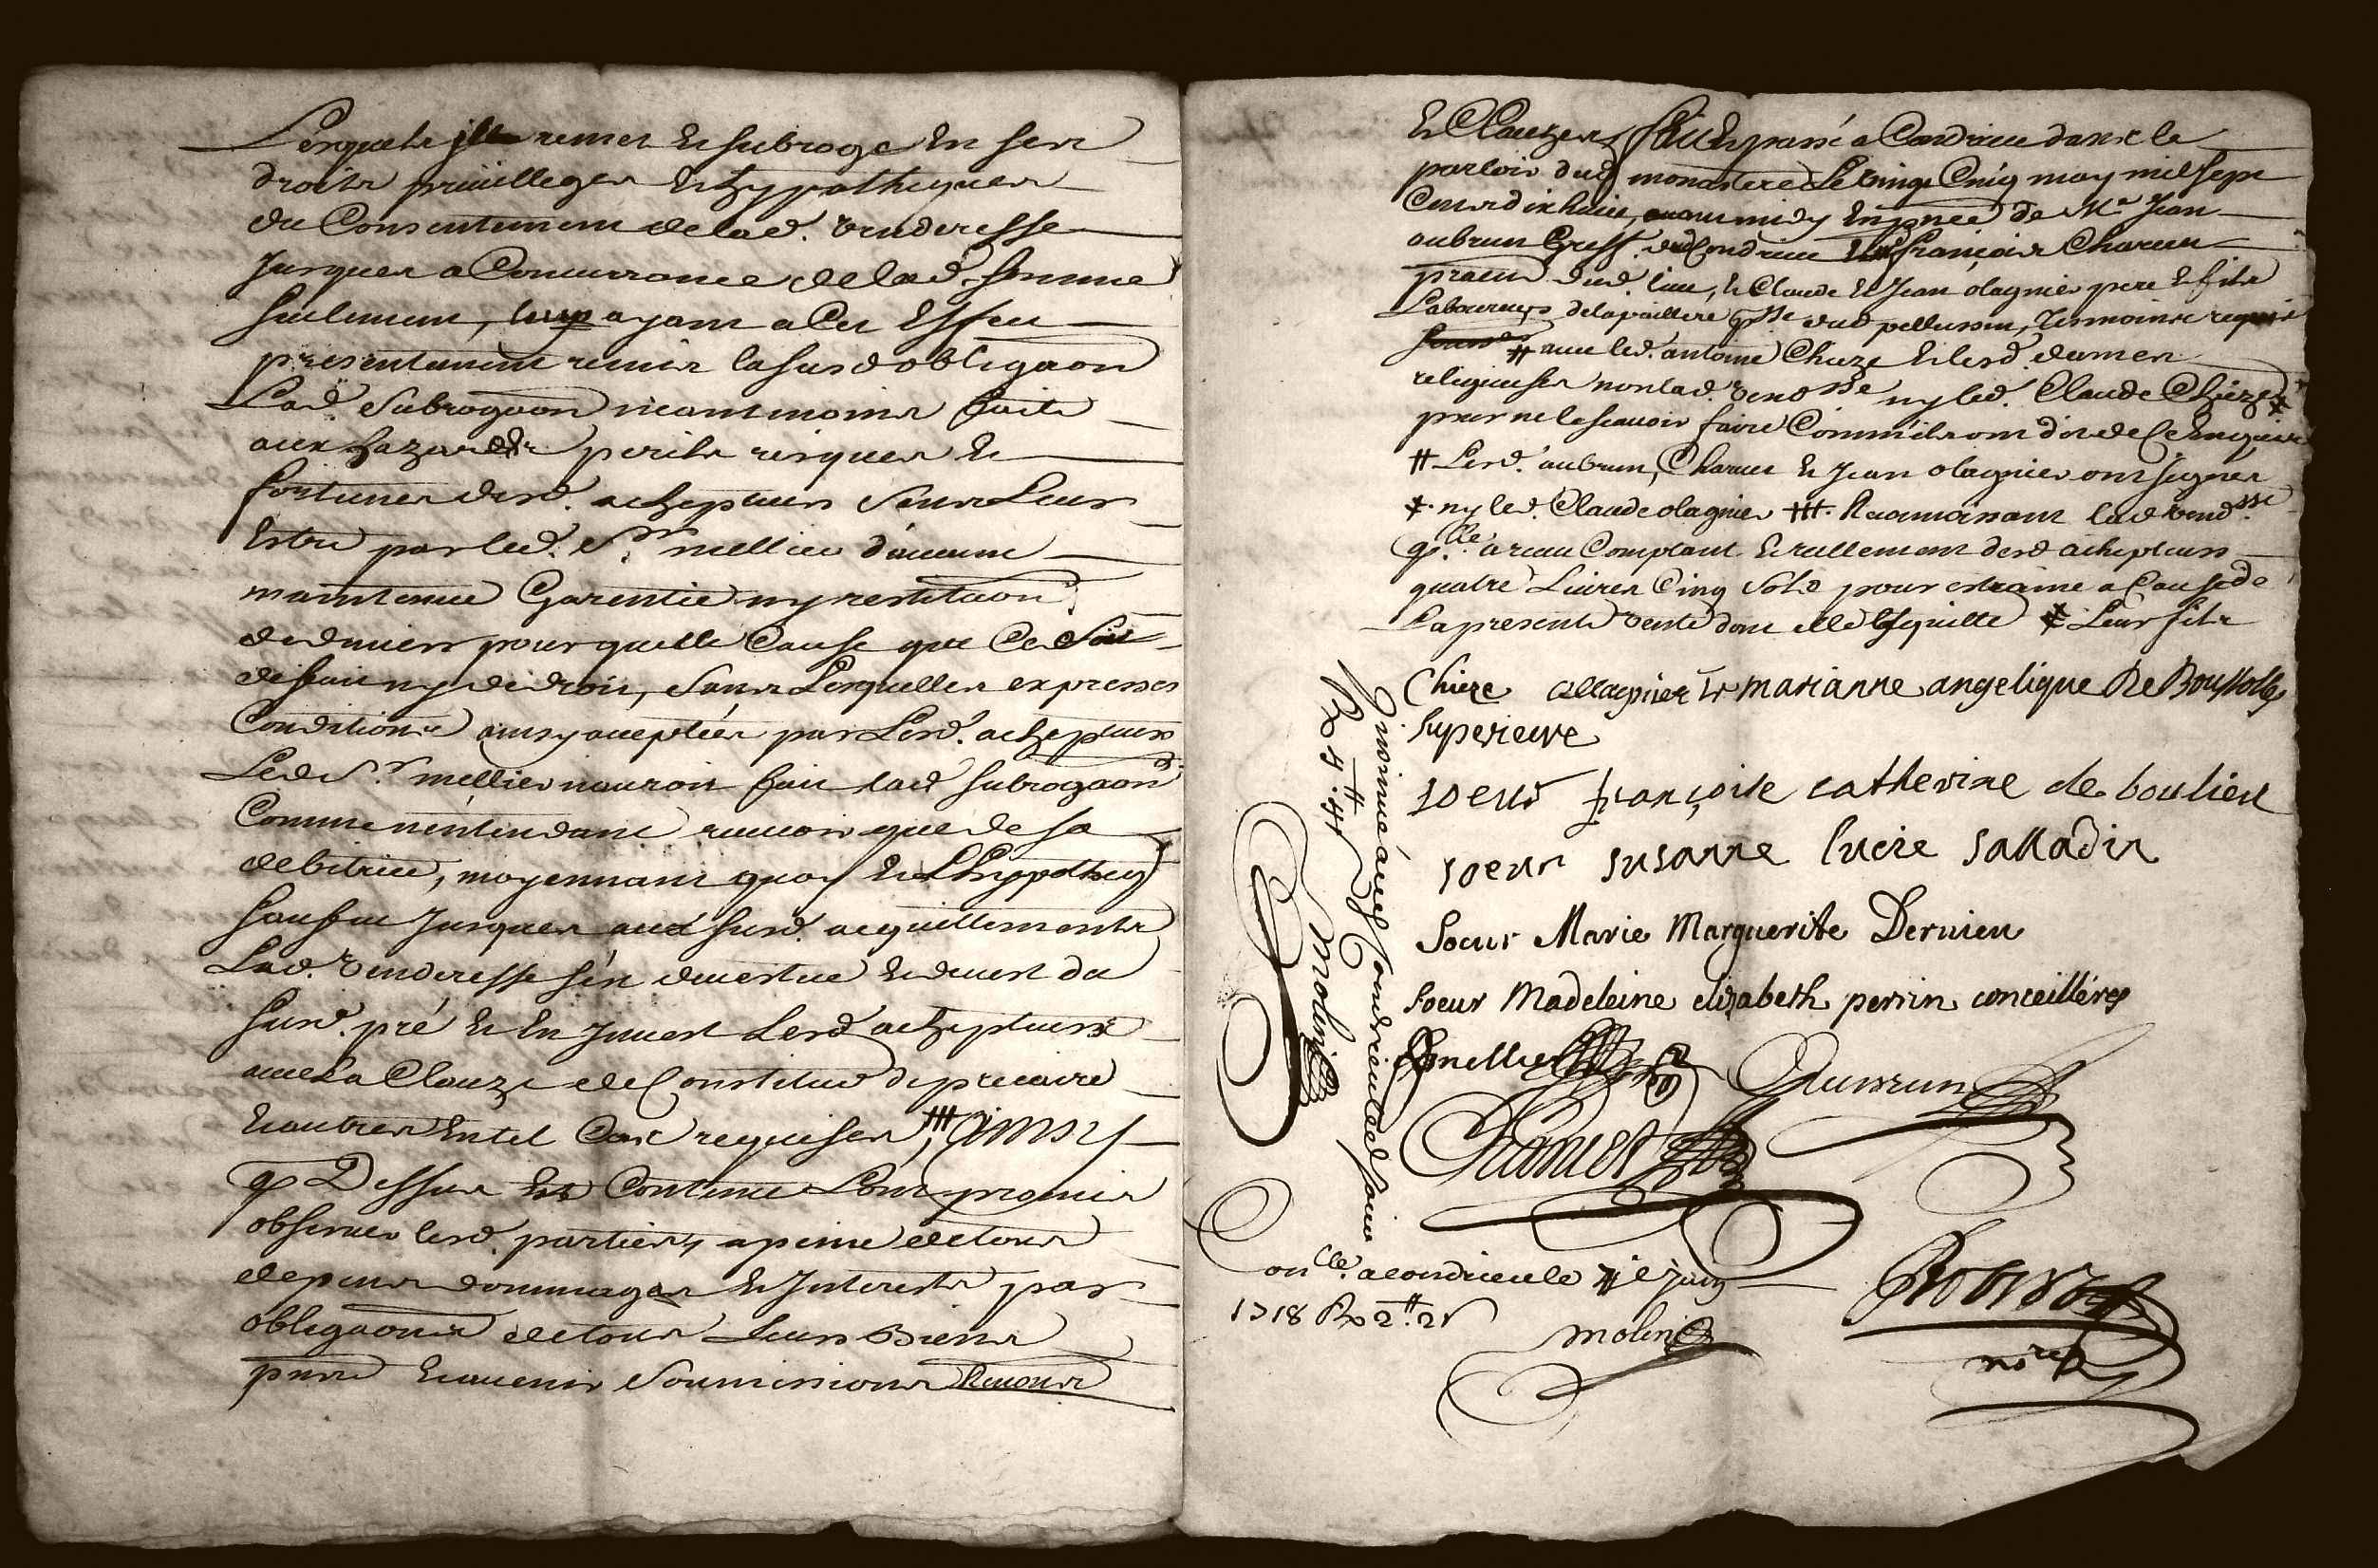 Lesquels il remet et subroge en ses
droits privilleges et hypotheques
du consentement de lad. venderesse
jusques a concurrance de lad. somme
seulement, leur ayant a cet effet
presentement remis la susd obligaon
Lad. subrogaon neantmoins faite
aux hazards perils risques et
fortunes desd. achepteurs sans leur
estre par led. Sr. mellier d'aucune
maintenue garentie ny restitution
de deniers pour quelle cause que ce soit
de fait ny de droit, sans lesquelles expresses
conditions ainsy acceptées par lesd. achepteurs
Led Sr mellier nauroit fait lad subrogaon
comme nentendant recevoir que de sa
debitrice, moyennant quoy et l'hyppotheq
sauf jusques aux susd. acquittements
Lad. venderesse s'en devestue et devest du
susd. pré et en jnvest lesd achepteurs
avec la clauze de constitud de precaire
et autres en tel cas requises, ⧻ ainsy
q Dessus est contenu l'ont promis
observer lesd. parties, a peine de tous
depens dommages et jnterests par
obligaons de tous leurs biens
pnts et avenir soumissions renons
et clauzes, fait et passé a Condrieu dans le
parloir dud monastere Le vingt cinq may mil sept
cents dix huit, avant midy en pnce de Me Jean
aubrun greff. de Condrieu François Charvet
praen dud. lieu, et Claude et Jean olagnier pere et fils
Laboureurs de la paroisse dud pellussin, tesmoins requis
avec led. antoine Chieze et lesd. dames
religieuses non lad. vendsse ny led. Claude Chieze
pour ne le scavoir faire comm'ils ont dit de ce enquis
# Lesd. aubrun, Charvet et Jean olagnier ont signes
ny led. Claude olagnier ⧻ Reconnoissant lad vendsse
qlle a receu comptant et reellement desd achepteurs
quatre Livres cinq sols pour estraine a cause de
la presente vente dont elle les quitte Leur fils
Chieze olagnier Sr marianne angelique De Boussolle
superieure
soeur françoise catherine de boulieu
soeur susanne lucie salladin
Soeur Marie Marguerite Dernieu
soeur Madeleine elizabeth perrin conceilléres
mellier Aubrun
Charvet
Insinué au greff Condrieu led jour
Rx 4#. 4s
molin
Conlle. a condrieu le 7e juin
1718 Rx 2#. 2s
molin
nore